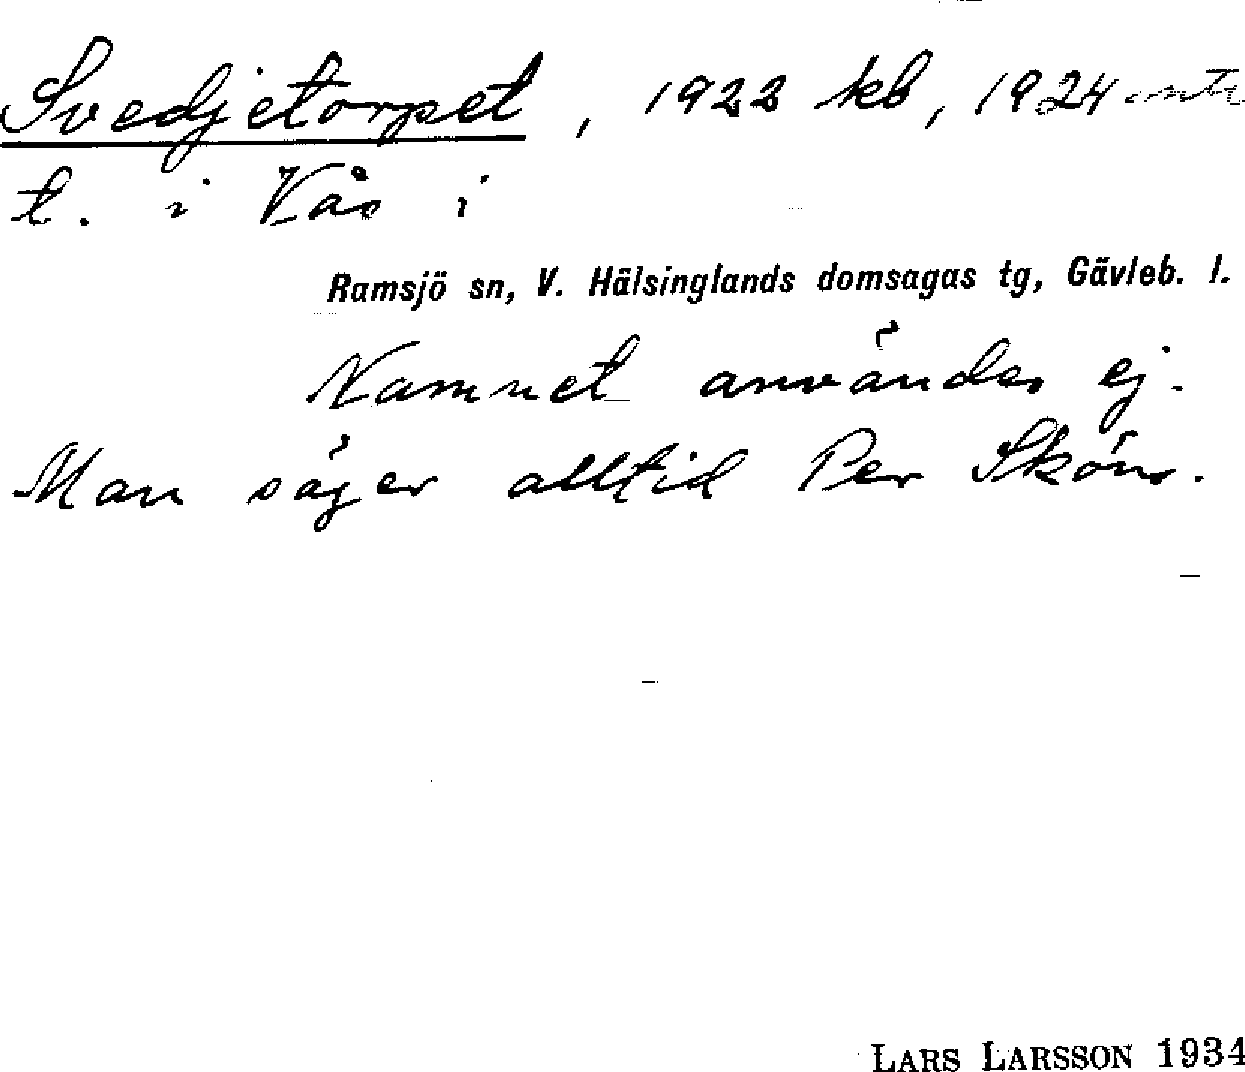 Svedjetorpet, 1922 kb, 1924
t. i Vås i
Ramsjö sn, V. Hälsinglands domsagas tg, Gävleb. l.
Namnet användes ej.
Man säger alltid Per Sköns.
LARS LARSSON 1934